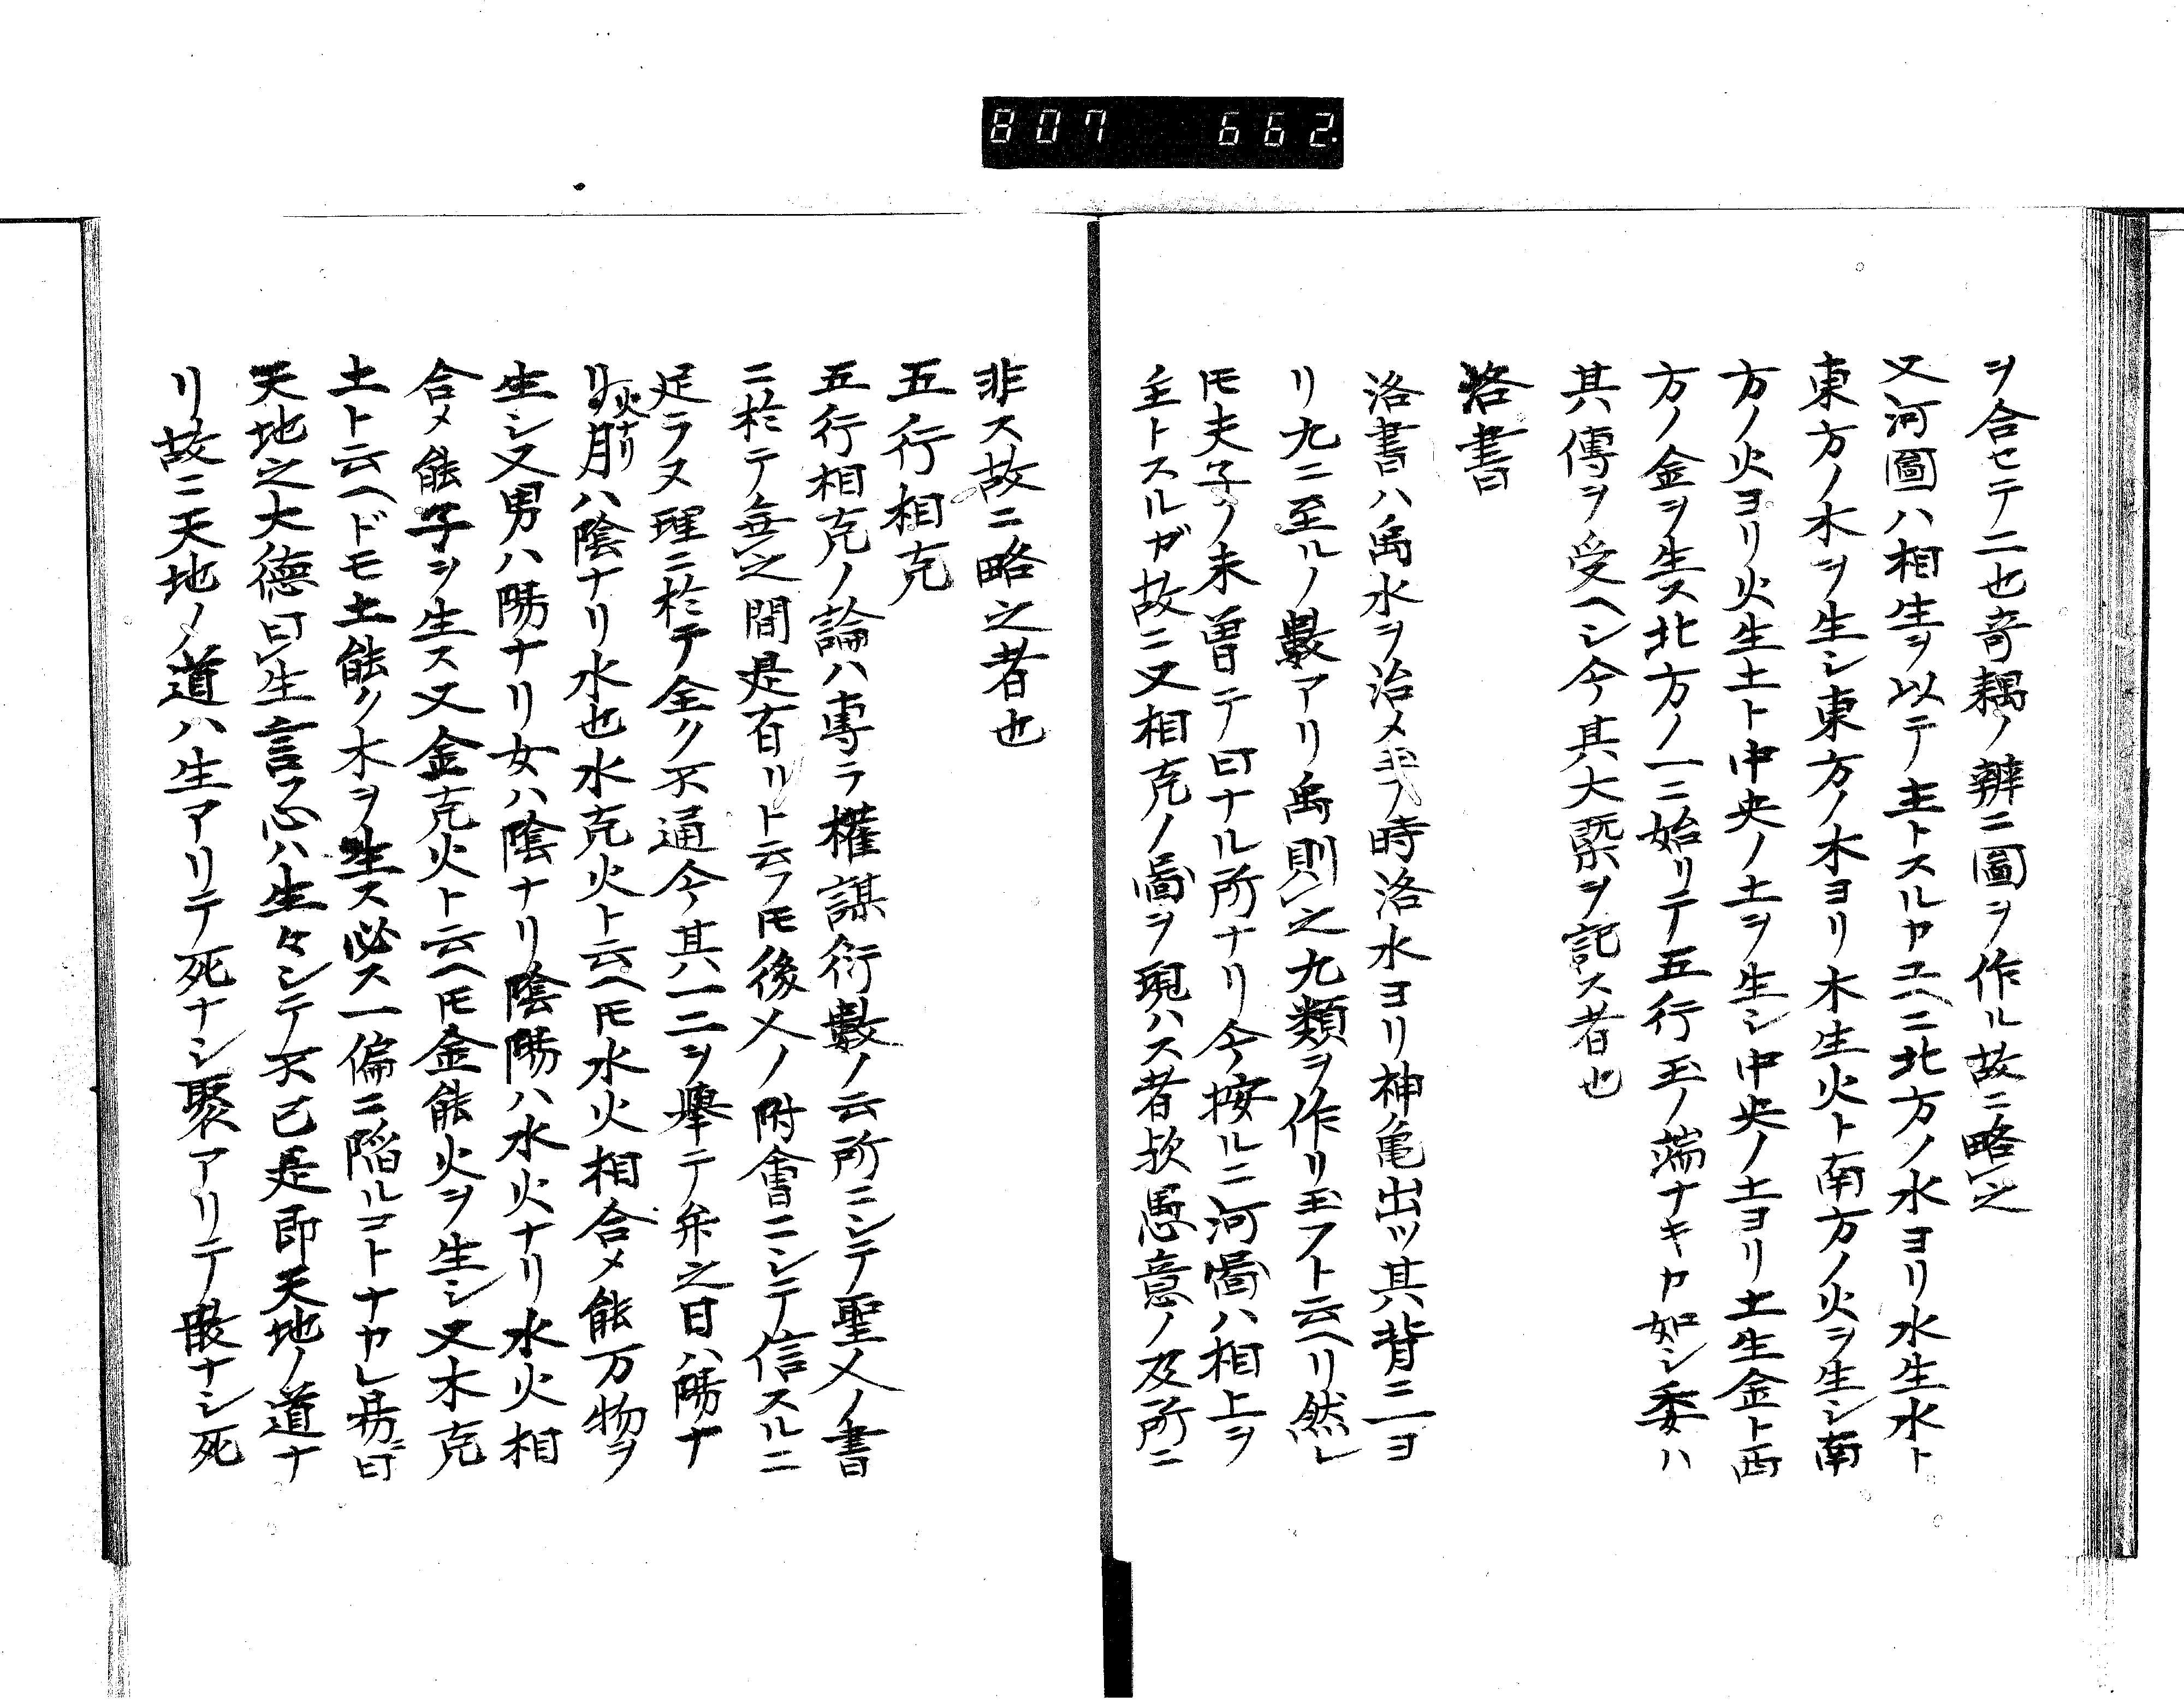 807 662
ヲ合セテ二也奇耦ノ辨ニ圖ヲ作ル故ニ略之
又河圖ハ相生ヲ以テ主トスルヤユヘニ北方ノ水ヨリ水生水ト
東方ノ木ヲ生シ東方ノ木ヨリ木生火ト南方ノ火ヲ生シ南
方ノ火ヨリ火生土ト中央ノ土ヲ生シ中央ノ土ヨリ土生金ト西
方ノ金ヲ生ス北方ノ一ニ始リテ五行玉ノ端ナキカ如シ委ハ
其傳ヲ受ヘシ今其大槩ヲ記ス者也
洛書
洛書ハ禹水ヲ治メ玉フ時洛水ヨリ神亀出ツ其背ニ一ヨ
リ九ニ至ルノ數アリ禹則之九類ヲ作リ玉フト云ヘリ然レ
𪜈夫子ノ未曽テ曰ナル所ナリ今按ルニ河圖ハ相上ヲ
主トスルガ故ニ又相克ノ圖ヲ現ハス者欤愚意ノ及所ニ
非ス故ニ略之者也
五行相克
五行相克ノ論ハ專ラ權謀術數ノ云所ニシテ聖人ノ書
ニ於テ無之間是有リト云フ𪜈後人ノ附會ニシテ信スルニ
足ラヌ理ニ於テ全ク不通今其一二ヲ擧テ弁之日ハ陽ナ
リ火ナリ月ハ陰ナリ水也水克火ト云ヘ𪜈水火相合メ能万物ヲ
生シ又男ハ陽ナリ女ハ陰ナリ陰陽ハ水火ナリ水火相
合メ能子ヲ生ス又金克火ト云ヘ𪜈金能火ヲ生シ又木克
土ト云ヘドモ土能ク木ヲ生ス必ス一偏ニ陥ルコトナカレ易曰
天地之大德曰生言フ心ハ生々シテ不已是即天地ノ道ナ
リ故ニ天地ノ道ハ生アリテ死ナシ聚アリテ散ナシ死